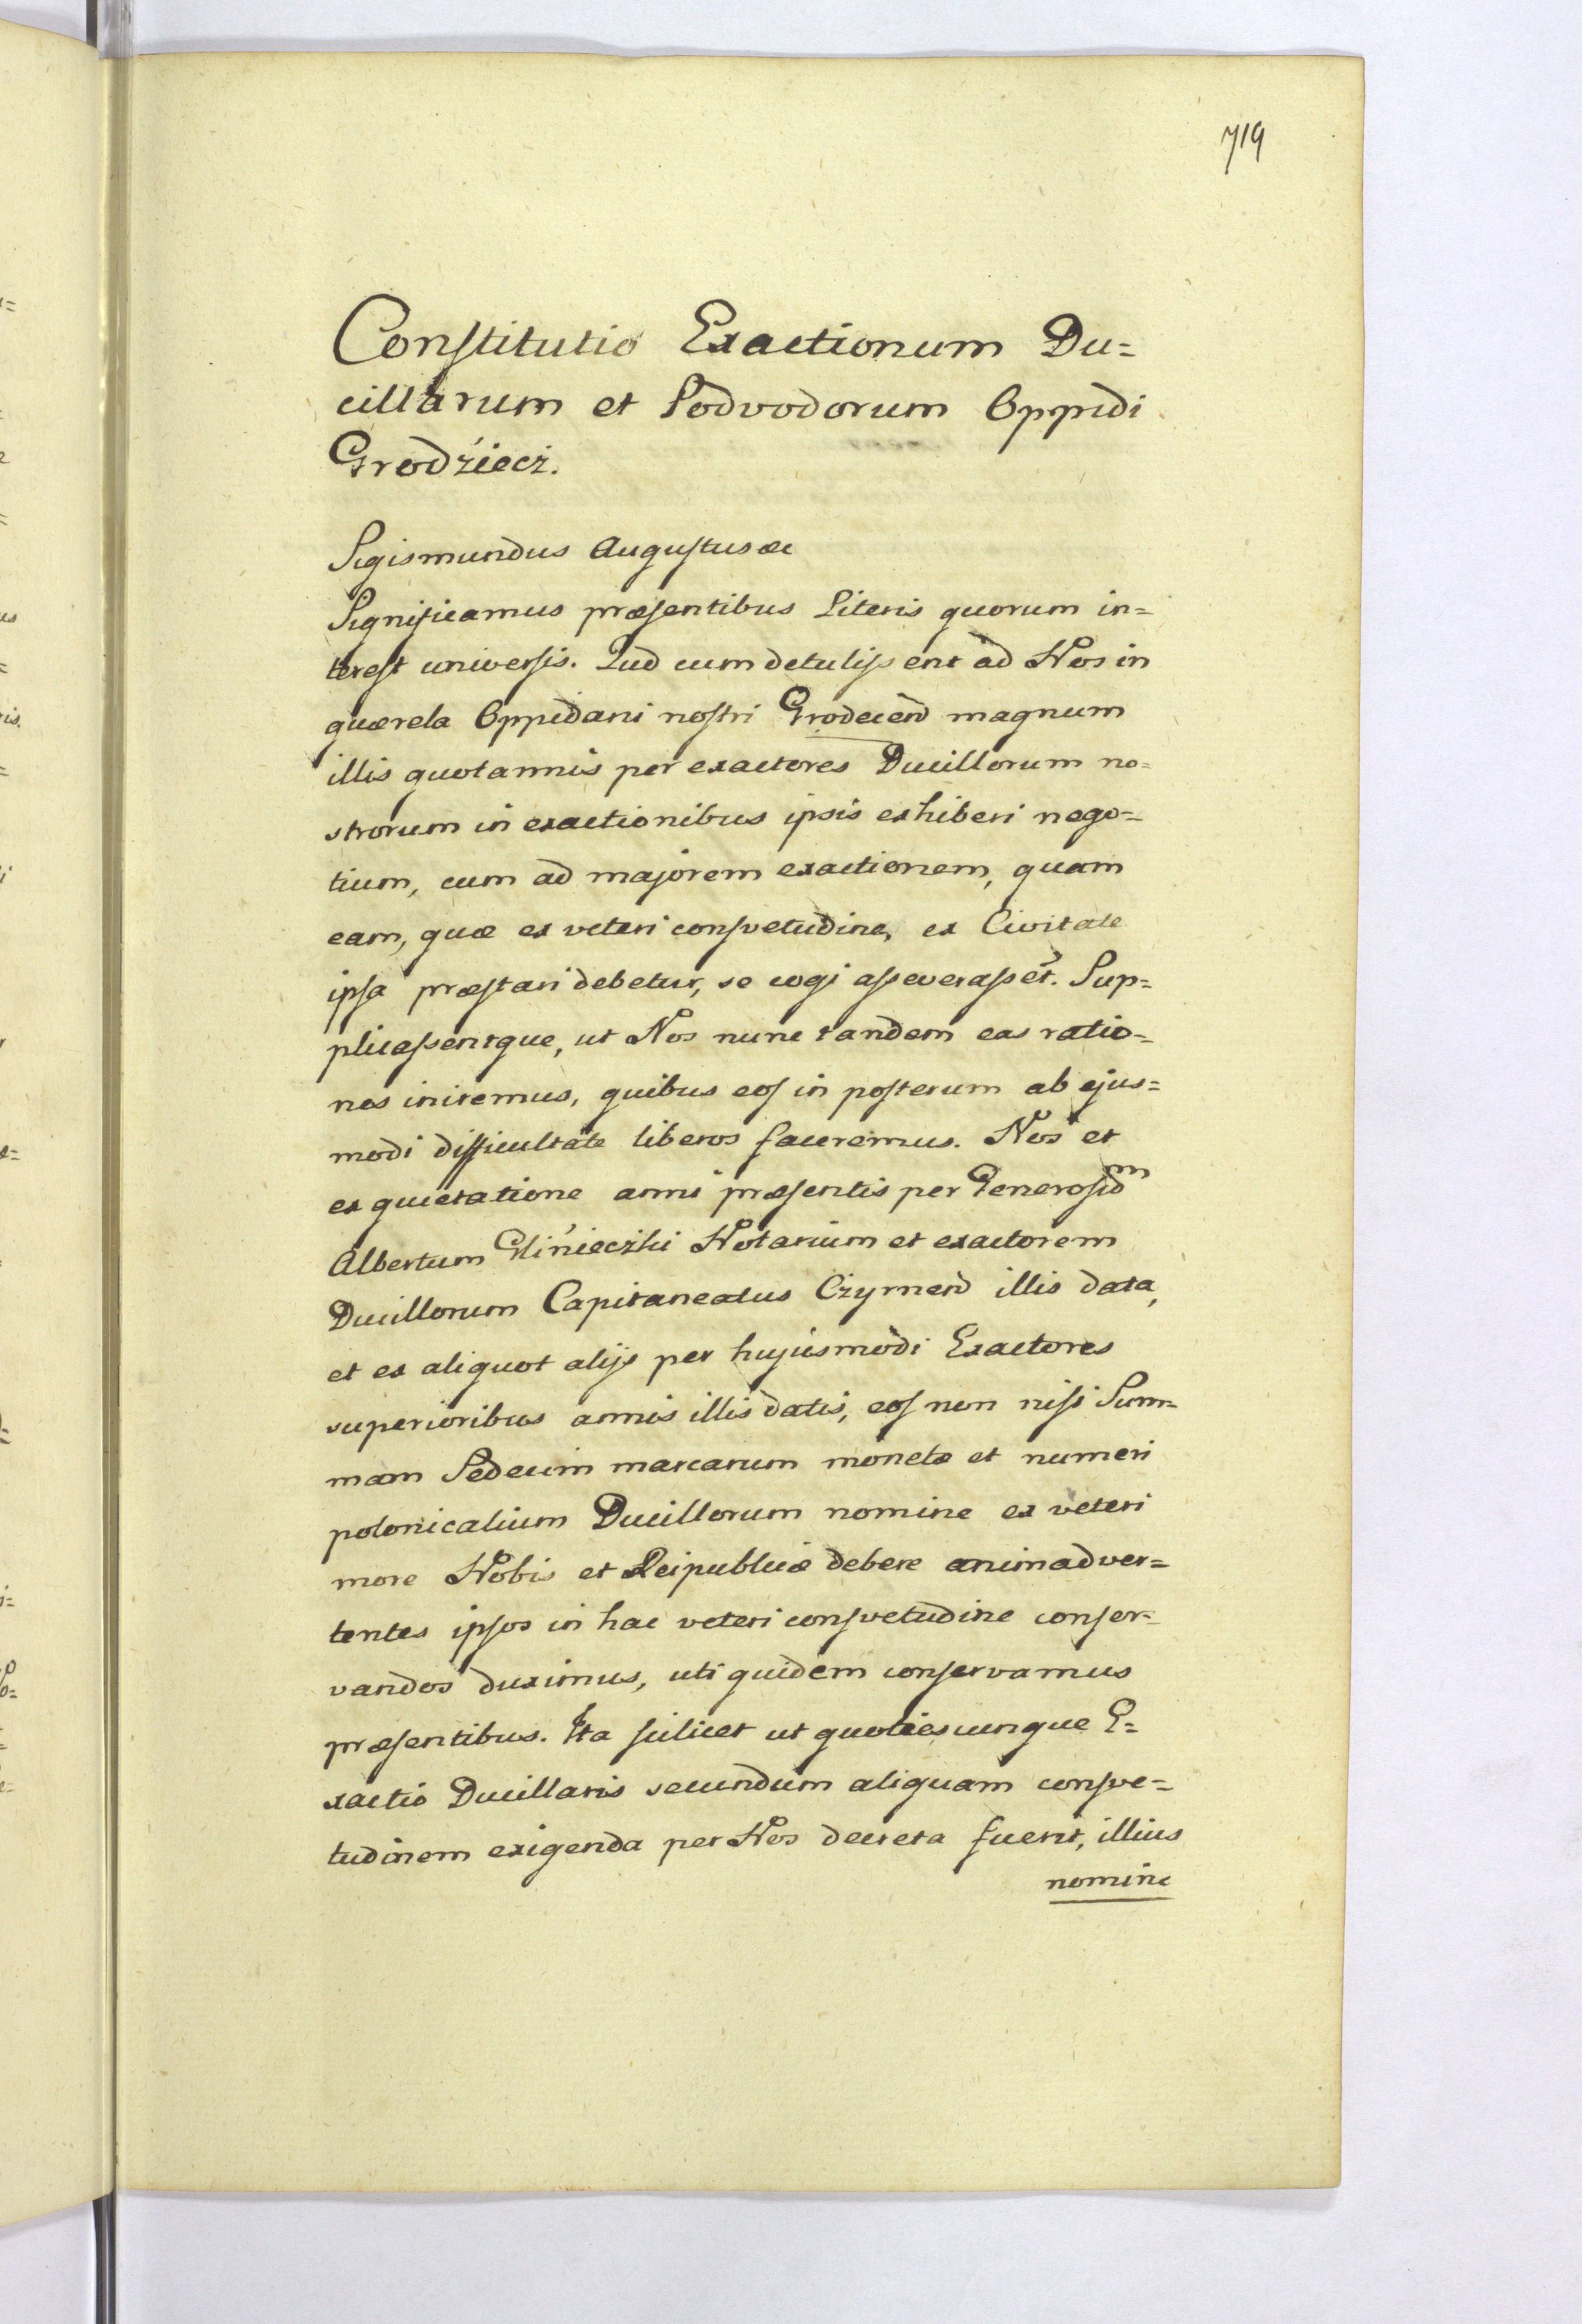 719
Constitutio Exactionum Du=
cillarum et Podvodorum Oppidi
Grodziecz.
Sigismundus Augustus &c
Significamus præsentibus Literis quorum in=
terest universis. Quod cum detulissent ad Nos in
quærela Oppidani nostri Grodecen magnum
illis quotannis per exactores Ducillorum no=
strorum in exactionibus ipsis exhiberi nego=
tium, cum ad majorem exactionem, quam
eam, quæ ex veteri consvetudine, ex Civitate
ipsa præstari debetur, se cogi asseverasset. Sup=
plicassentque, ut Nos nunc tandem eas ratio=
nes iniremus, quibus eos in posterum ab ejus=
modi difficultate liberos faceremus. Nos et
ex quietatione anni præsentis per Generosum
Albertum Glinieczki Notarium et exactorem
Ducillorum Capitaneatus Czyrnen illis data,
et ex aliquot alijs per hujusmodi Exactores
superioribus annis illis datis, eos non nisi Sum=
mam Sedecim marcarum monetæ et numeri
polonicalium Ducillorum nomine ex veteri
more Nobis et Reipublicæ debere animadver=
tentes ipsos in hac veteri consvetudine conser=
vandos duximus, uti quidem conservamus
præsentibus. Ita scilicet ut quotiescunque E=
xactio Ducillaris secundum aliquam consve=
tudinem exigenda per Nos decreta fuerit, illius
nomine